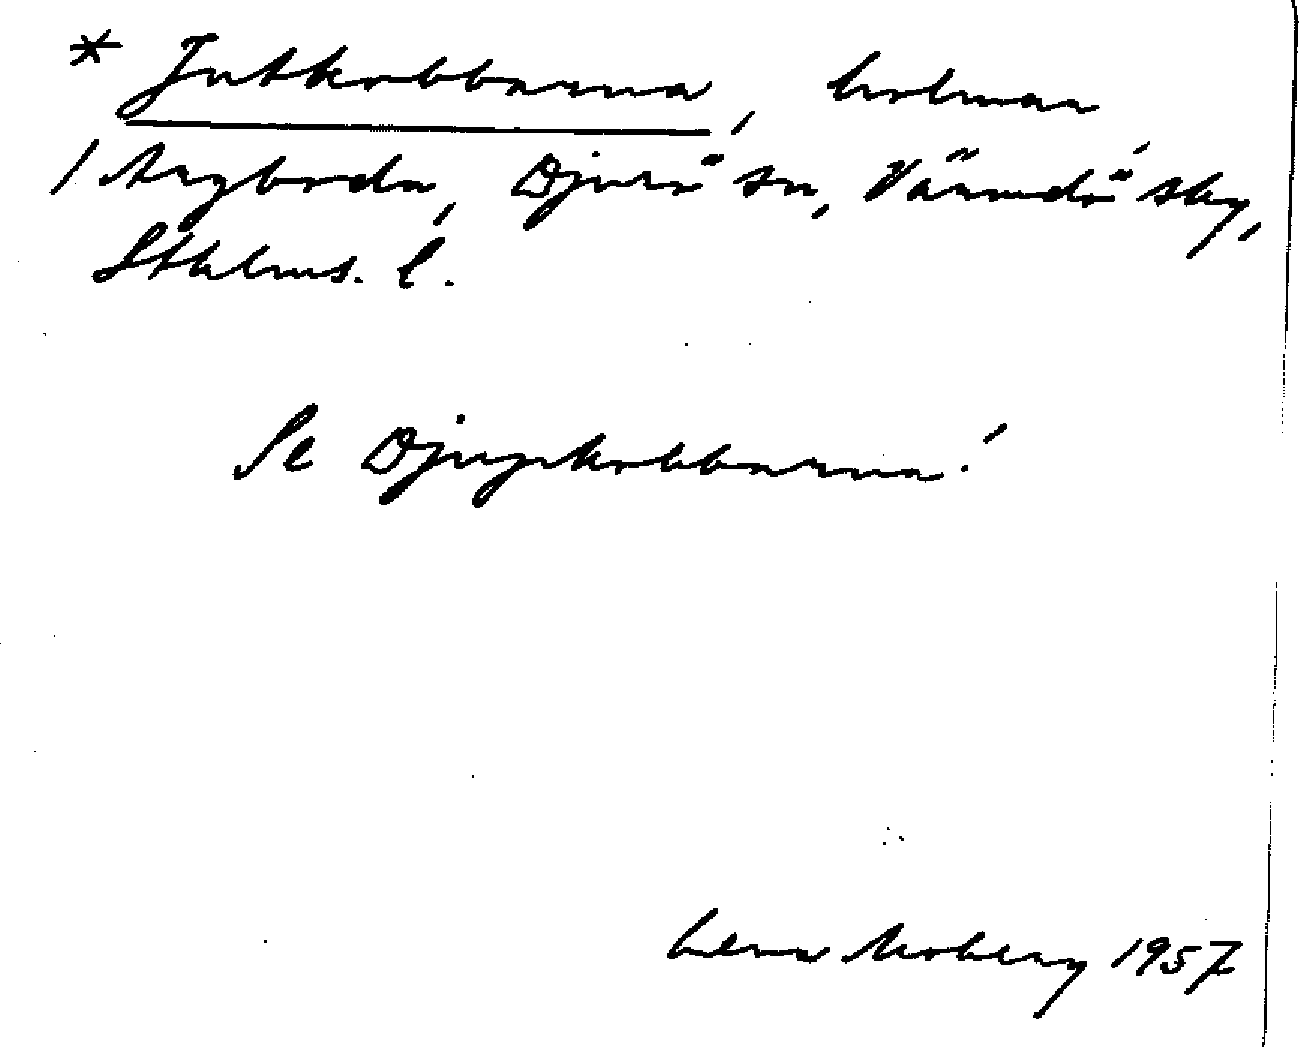 * Jutkobbarna, holmar
/ Aryboda, Djurö sn, Värmdö sky,
Sthlms. l.
Se Djupkobbarna!
Lena Moberg 1957